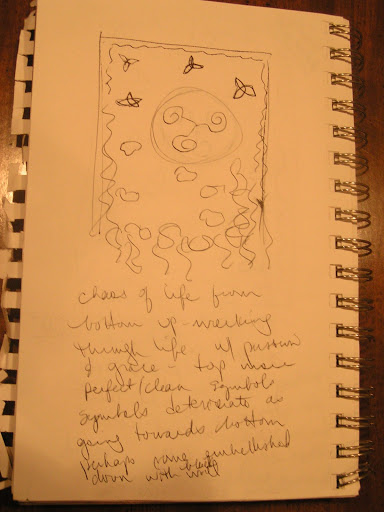 chaos of life from
bottom up - working
through life w/
& grace - top more
perfect/clean symbols
symbols deteriorate as
going towards bottom
perhaps more embellished
down with